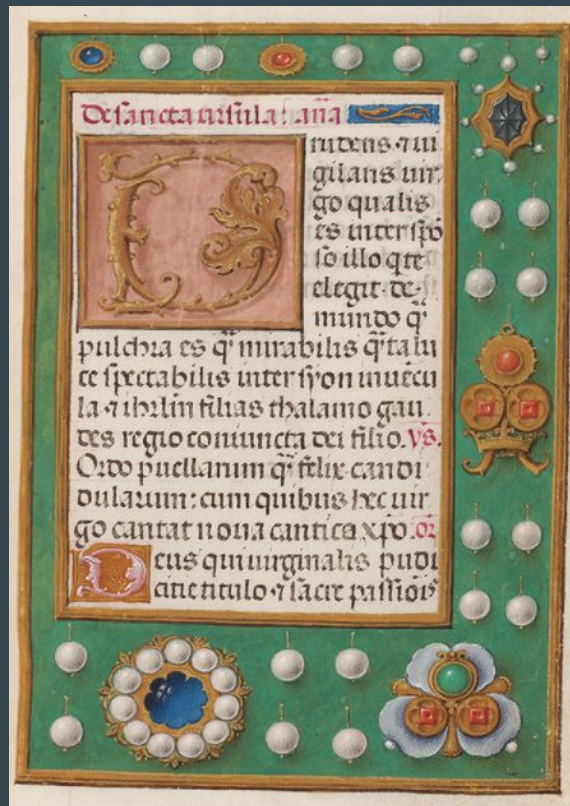 De sancta ursula: ana
rudens ⁊ ui
gilans uir
go qualis
es inter spō
so illo q te
elegit de
mundo q̄
pulchra es q̄ mirabilis q̄ talu
ce spectabilis inter syon iuuēcu
la ⁊ ihrlm filias thalamo gau
des regio coniuncta dei filio. Vs.
Ordo puellarum q̄ felix candi
dularum: cum quibus hec uir
go cantat noua cantica xpo. or
Deus qui uirginalis pudi
citie titulo ⁊ sacre passiois